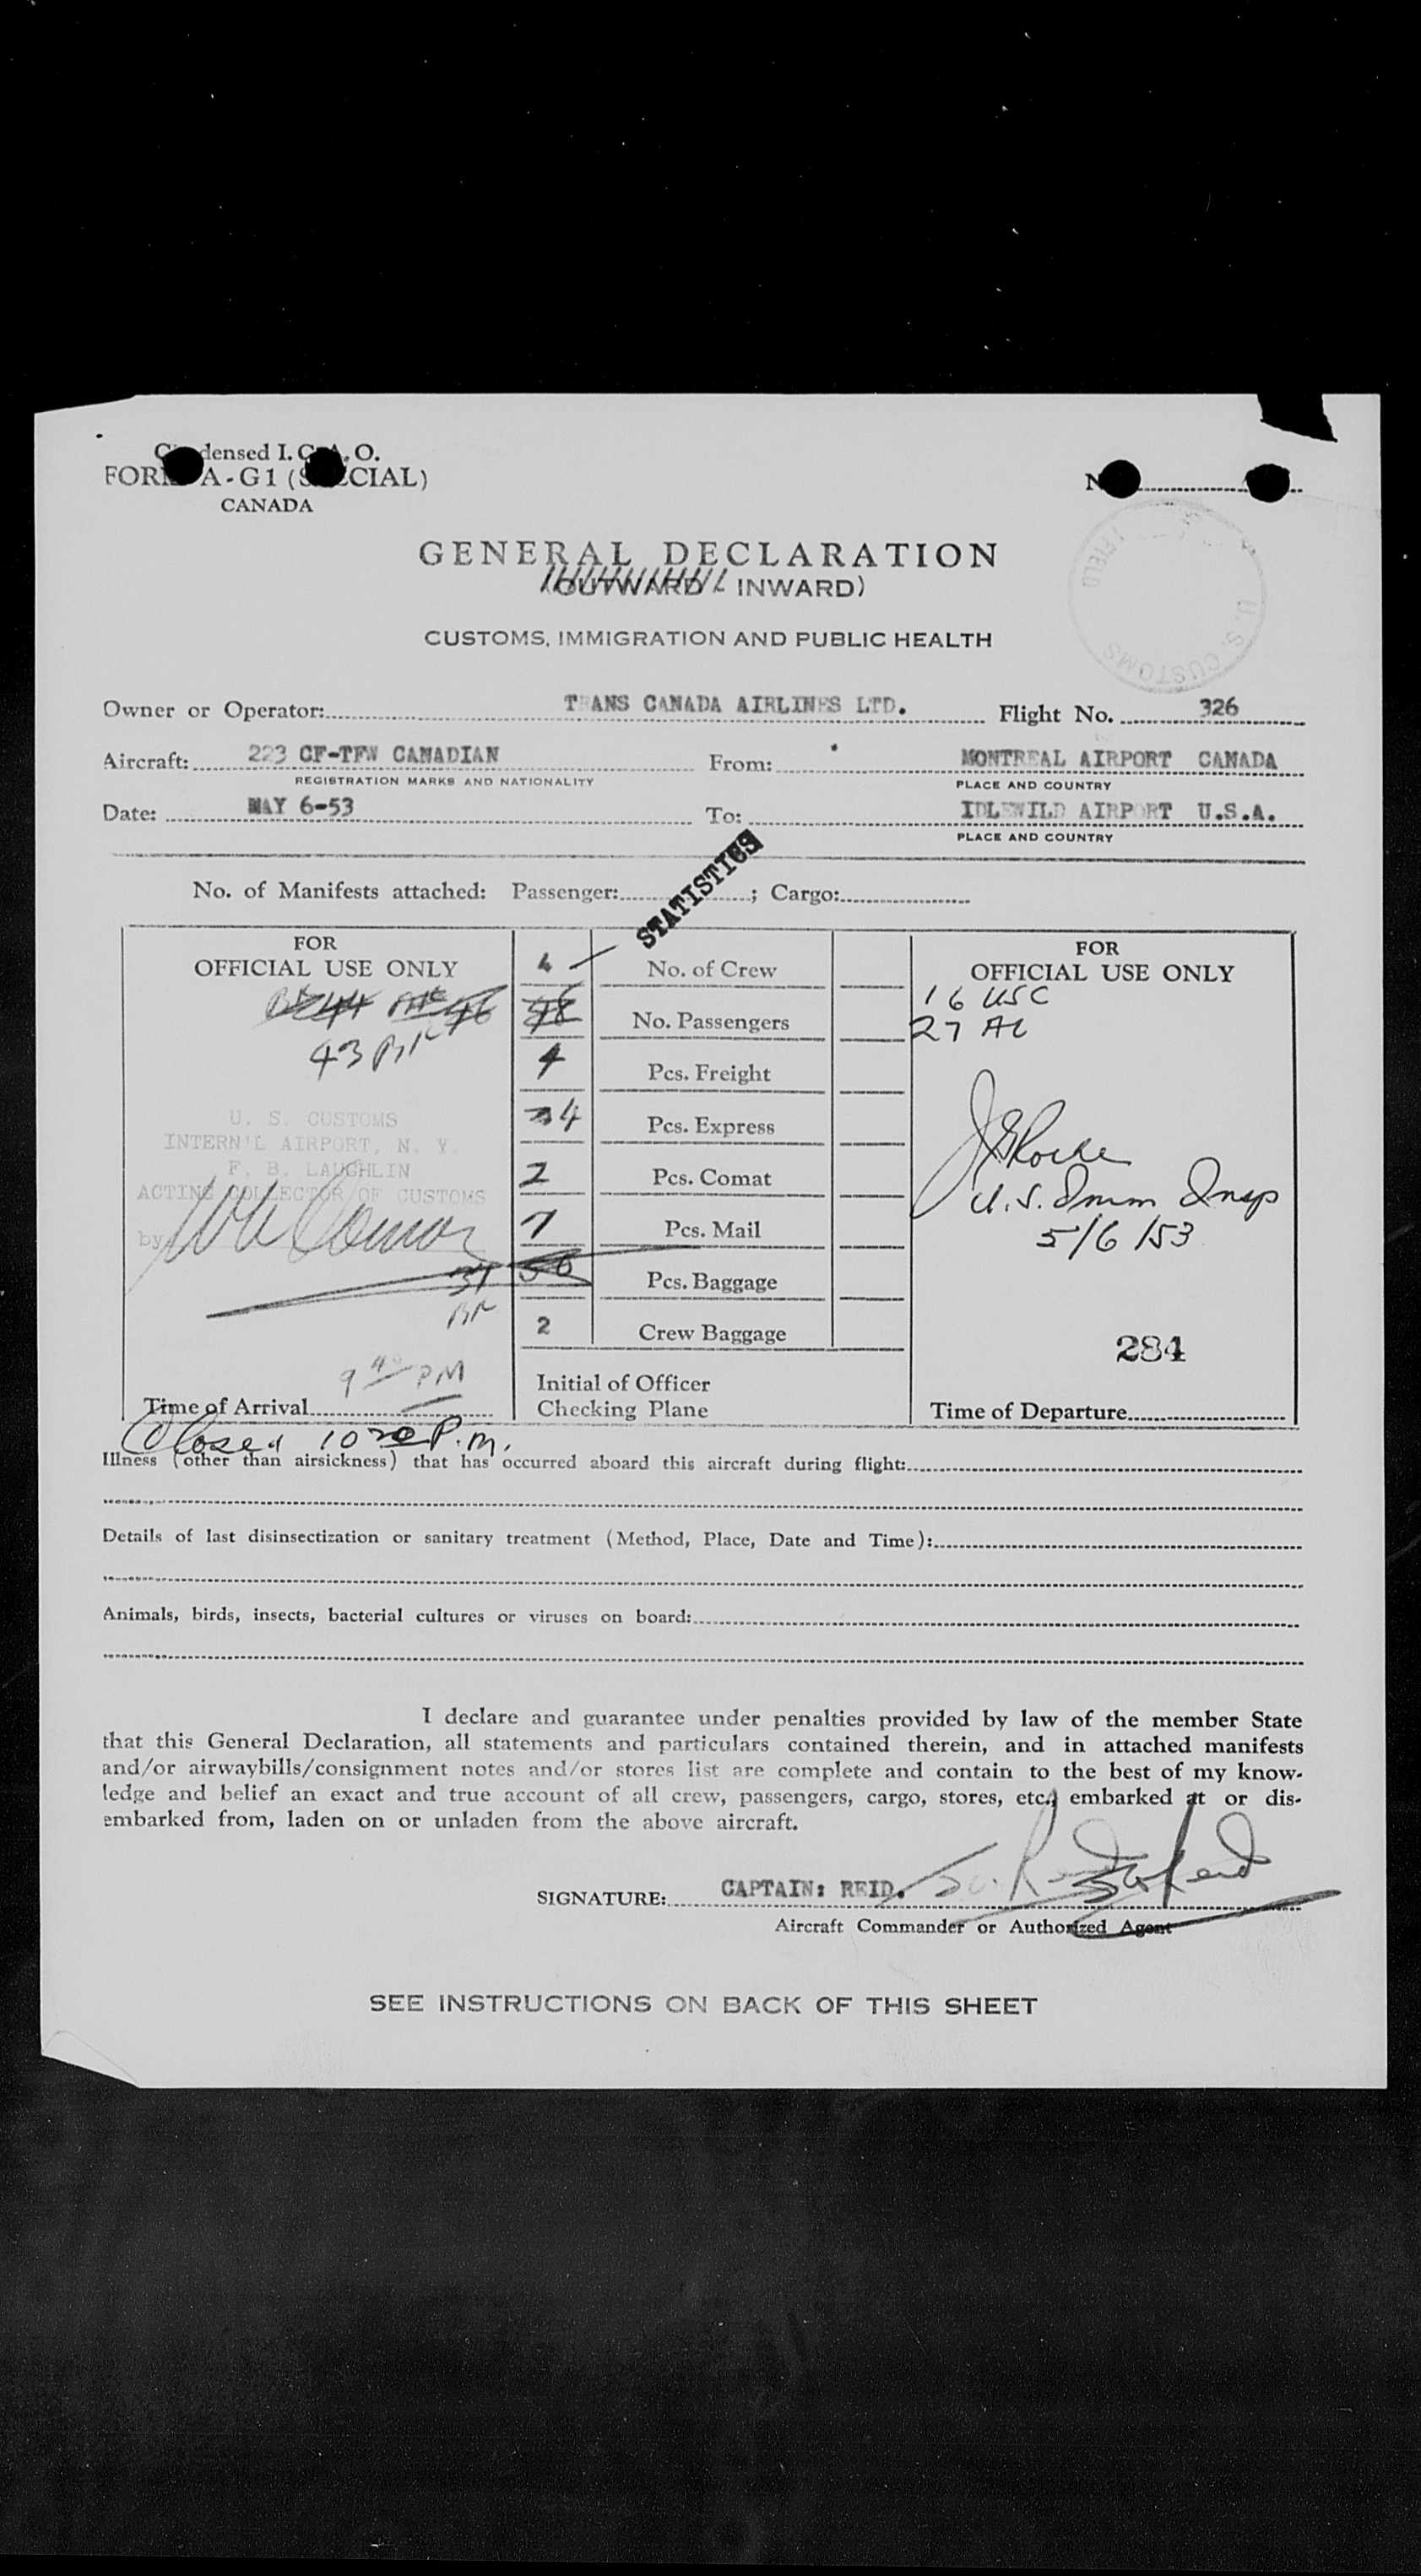 Condensed I.C.A.O.
FORM A-G1 (SPECIAL)
CANADA
GENERAL DECLARATION
(OUTWARD / INWARD)
CUSTOMS, IMMIGRATION AND PUBLIC HEALTH
FIELD
U. S. CUSTOMS
Owner or Operator: TRANS CANADA AIRLINES LTD. Flight No. 326
Aircraft: 223 CF-TFW CANADIAN From: MONTREAL AIRPORT CANADA
REGISTRATION MARKS AND NATIONALITY PLACE AND COUNTRY
Date: MAY 6-53 To: IDLEWILD AIRPORT U.S.A.
PLACE AND COUNTRY
STATISTICS
No. of Manifests attached: Passenger: ; Cargo:
FOR
OFFICIAL USE ONLY
43
U. S. CUSTOMS
INTERN'L AIRPORT, N. Y.
F. B. LAUGHLIN
ACTING COLLECTOR OF CUSTOMS
by
9 40 PM
Time of Arrival
Closed 10 20 P.m.
4 No. of Crew
No. Passengers
4 Pcs. Freight
4 Pcs. Express
2 Pcs. Comat
7 Pcs. Mail
Pcs. Baggage
2 Crew Baggage
Initial of Officer
Checking Plane
FOR
OFFICIAL USE ONLY
16 USC
27 AL
U.S. Imm Insp
5/6/53
284
Time of Departure
Illness (other than airsickness) that has occurred aboard this aircraft during flight:
Details of last disinsectization or sanitary treatment (Method, Place, Date and Time):
Animals, birds, insects, bacterial cultures or viruses on board:
I declare and guarantee under penalties provided by law of the member State
that this General Declaration, all statements and particulars contained therein, and in attached manifests
and/or airwaybills/consignment notes and/or stores list are complete and contain to the best of my know-
ledge and belief an exact and true account of all crew, passengers, cargo, stores, etc., embarked at or dis-
embarked from, laden on or unladen from the above aircraft.
SIGNATURE: CAPTAIN: REID.
Aircraft Commander or Authorized Agent
SEE INSTRUCTIONS ON BACK OF THIS SHEET